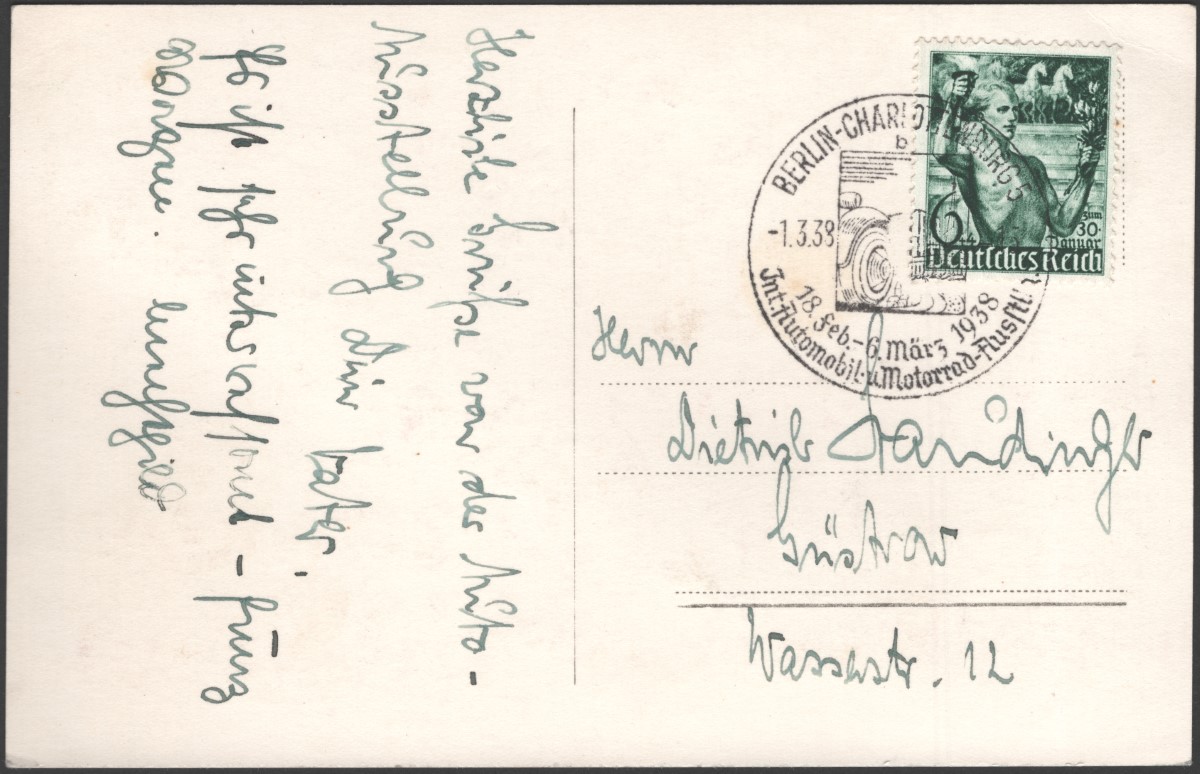 Herzliche Grüße von der Auto-
Ausstellung Dein Vater.
Es ist sehr interessant - Franz
Morgen.
BERLIN-CHARLOTTENBURG 5
b
-1.3.38
18. Feb.-6. März 1938
Int. Automobil- u. Motorrad-Ausstlg.
6
zum
30.
Januar
Deutsches Reich
Herrn
Dietrich
Güstrow
Wasserstr. 12